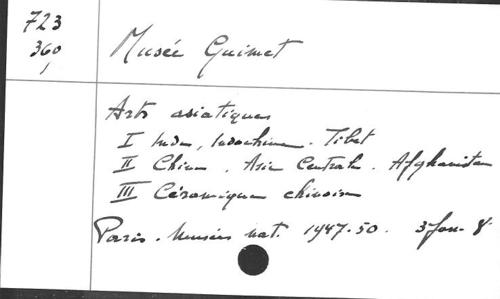 723
360
1
Musée Guimet
Arts asiatiques
I Inde, Indochine. Tibet
II Chine. Asie Centrale. Afghanistan
III Céramique chinoise
Paris. Musées nat. 1947-50. 3 fasc. 8°